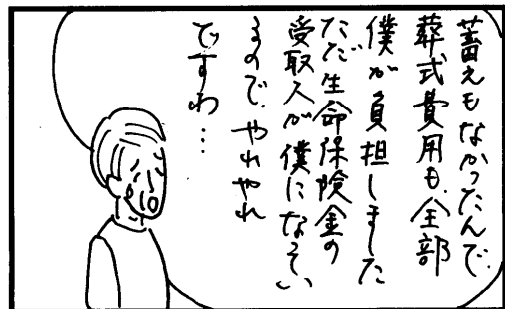 蓄えもなかったんで、
葬式費用も、全部
僕が負担しました
ただ生命保険金の
受取人が僕になってい
るので、やれやれ
ですわ…